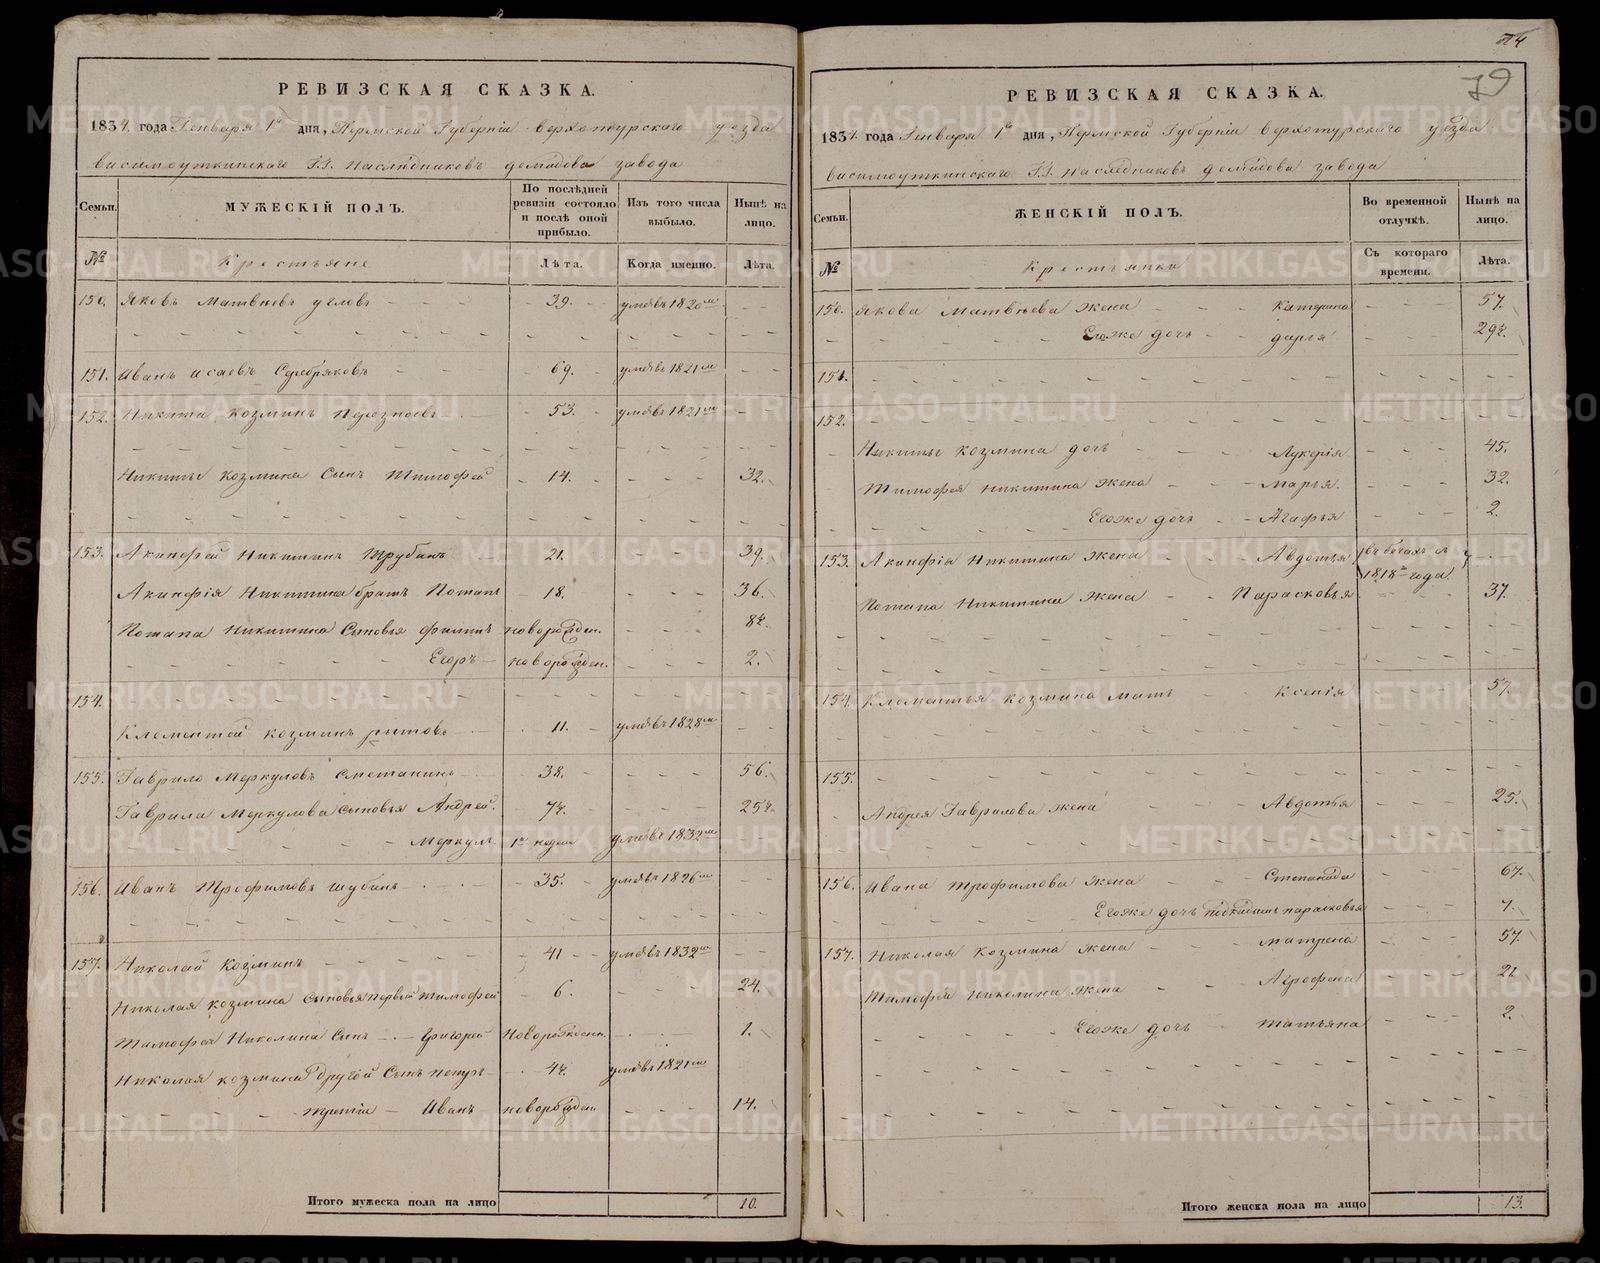 РЕВИЗСКАЯ СКАЗКА.
1834. года Генваря 1го дня, Пермской Губерніи Верхотурскаго уезда
висимоуткинскаго Г.Г. наследниковъ демидова завода
Семьи. МУЖЕСКІЙ ПОЛЪ. По послѣдней ревизіи состояло и послѣ оной прибыло. Изъ того числа выбыло. Нынѣ на лицо.
№ Крестьяне Лѣта. Когда именно. Лѣта.
150. Яковъ Матвеевъ угловъ 39. умеръ 1820м
151. Иванъ исаевъ Серебряковъ 69. умеръ 1821м
152. Никита козминъ 53. умеръ 1821м
Никиты козмина Сынъ Тимофей 14. 32.
153. Акинфей Никитинъ Трубинъ 21. 39.
Акинфія Никитина братъ Потапъ 18. 36.
Потапа Никитина Сыновья филипъ новорожден. 8½.
Егоръ новорожден. 2.
154.
Клементей козминъ рытовъ 11. умеръ 1828м
155. Гаврило Меркуловъ Сметанинъ 38. 56.
Гаврила Меркулова Сыновья Андрей. 7½. 25½.
Меркулъ. 1а неделя умеръ 1832м
156. Иванъ Трофимовъ шубинъ 35. умеръ 1826м
157. Николай Козминъ 41 умеръ 1832м
Николая козмина Сыновья первый Тимофей 6. 24.
Тимофея Николина Сынъ Григорей Новорожден. 1.
Николая козмина другой Сынъ 4½. умеръ 1821м
третій Иванъ новорожден. 14.
Итого мужеска пола на лицо 10.
79
РЕВИЗСКАЯ СКАЗКА.
1834. года Генваря 1го дня, Пермской Губерніи верхотурскаго уезда
висимоуткинскаго Г.Г. наследниковъ демидова завода
Семьи. ЖЕНСКІЙ ПОЛЪ. Во временной отлучкѣ. Нынѣ на лицо.
№ Крестьянки Съ котораго времени. Лѣта.
150. Якова Матвеева жена Катерина 57.
Егоже дочь дарья 29½.
151.
152.
Никиты козмина дочь Лукерія 45.
Тимофея никитина жена Марья. 32.
Егоже дочь Агафья 2.
153. Акинфія Никитина жена Авдотья въ бегахъ съ 1818го года
Потапа Никитина жена Парасковья 37.
154. Клементья козмина мать Ксенія 57.
155.
Андрея Гаврилова жена Авдотья 25.
156. Ивана трофимова жена Степанида 67.
Егоже дочь парасковья 7.
157. Николая Козмина жена матрена 57.
Тимофея Николина жена Агрофена 21
Егоже дочь татьяна 2.
Итого женска пола на лицо 13.
METRIKI.GASO-URAL.RU